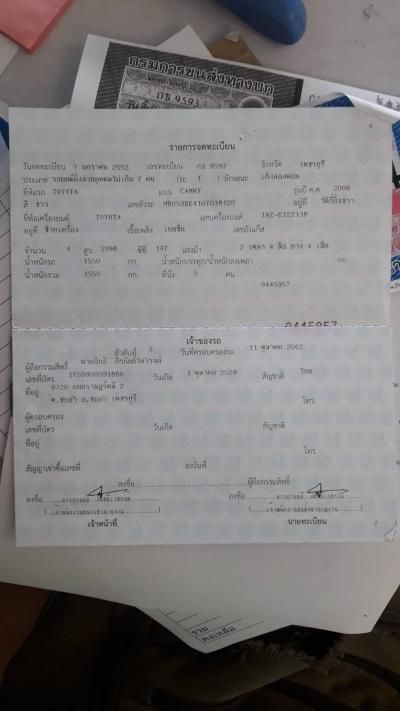 กรมการขนส่งทางบก
กธ 9593
รายการจดทะเบียน
วันจดทะเบียน 7 มกราคม 2552 เลขทะเบียน กธ 9593 จังหวัด เพชรบุรี
ประเภท รถยนต์นั่งส่วนบุคคลไม่เกิน 7 คน (รย. 1 ) ลักษณะ เก๋งสองตอน
ยี่ห้อรถ TOYOTA แบบ CAMRY รุ่นปี ค.ศ. 2008
สี ขาว เลขตัวรถ MR053BK4107038120 อยู่ที่
ยี่ห้อเครื่องยนต์ TOYOTA เลขเครื่องยนต์ 1AZ-E122138
อยู่ที่ ข้างเครื่อง เชื้อเพลิง เบนซิน เลขถังแก๊ส
จำนวน 4 สูบ 1998 ซีซี 147 แรงม้า 2 เพลา 4 ล้อ ยาง 4 เส้น
น้ำหนักรถ 1550 กก. น้ำหนักบรรทุก/น้ำหนักลงเพลา กก.
น้ำหนักรวม 1550 กก. ที่นั่ง 5 คน
0445957
0445957
เจ้าของรถ
ลำดับที่ 2 วันที่ครอบครองรถ 11 ตุลาคม 2562
ผู้ถือกรรมสิทธิ์
เลขที่บัตร 1759900091860 วันเกิด 1 ตุลาคม 2529 สัญชาติ ไทย
ที่อยู่ 9/20
ต.ชะอำ อ.ชะอำ เพชรบุรี โทร.
ผู้ครอบครอง
เลขที่บัตร วันเกิด สัญชาติ
ที่อยู่
โทร.
สัญญาเช่าซื้อเลขที่ ลงวันที่
ลงชื่อ ผู้ถือกรรมสิทธิ์
ลงชื่อ ลงชื่อ
เจ้าหน้าที่ นายทะเบียน
7
รวม
คงเหลือ